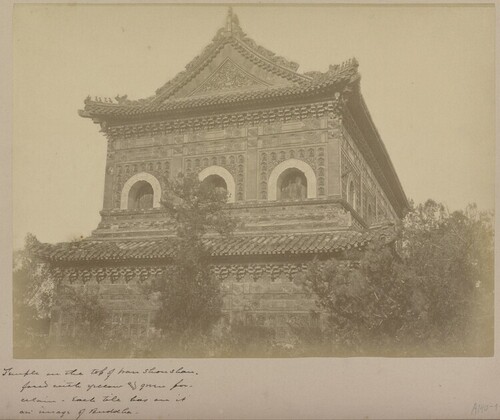 Temple on the top of Wan Shou Shan.
faced with yellow & green por-
celain. Each tile has on it
an image of Buddha.